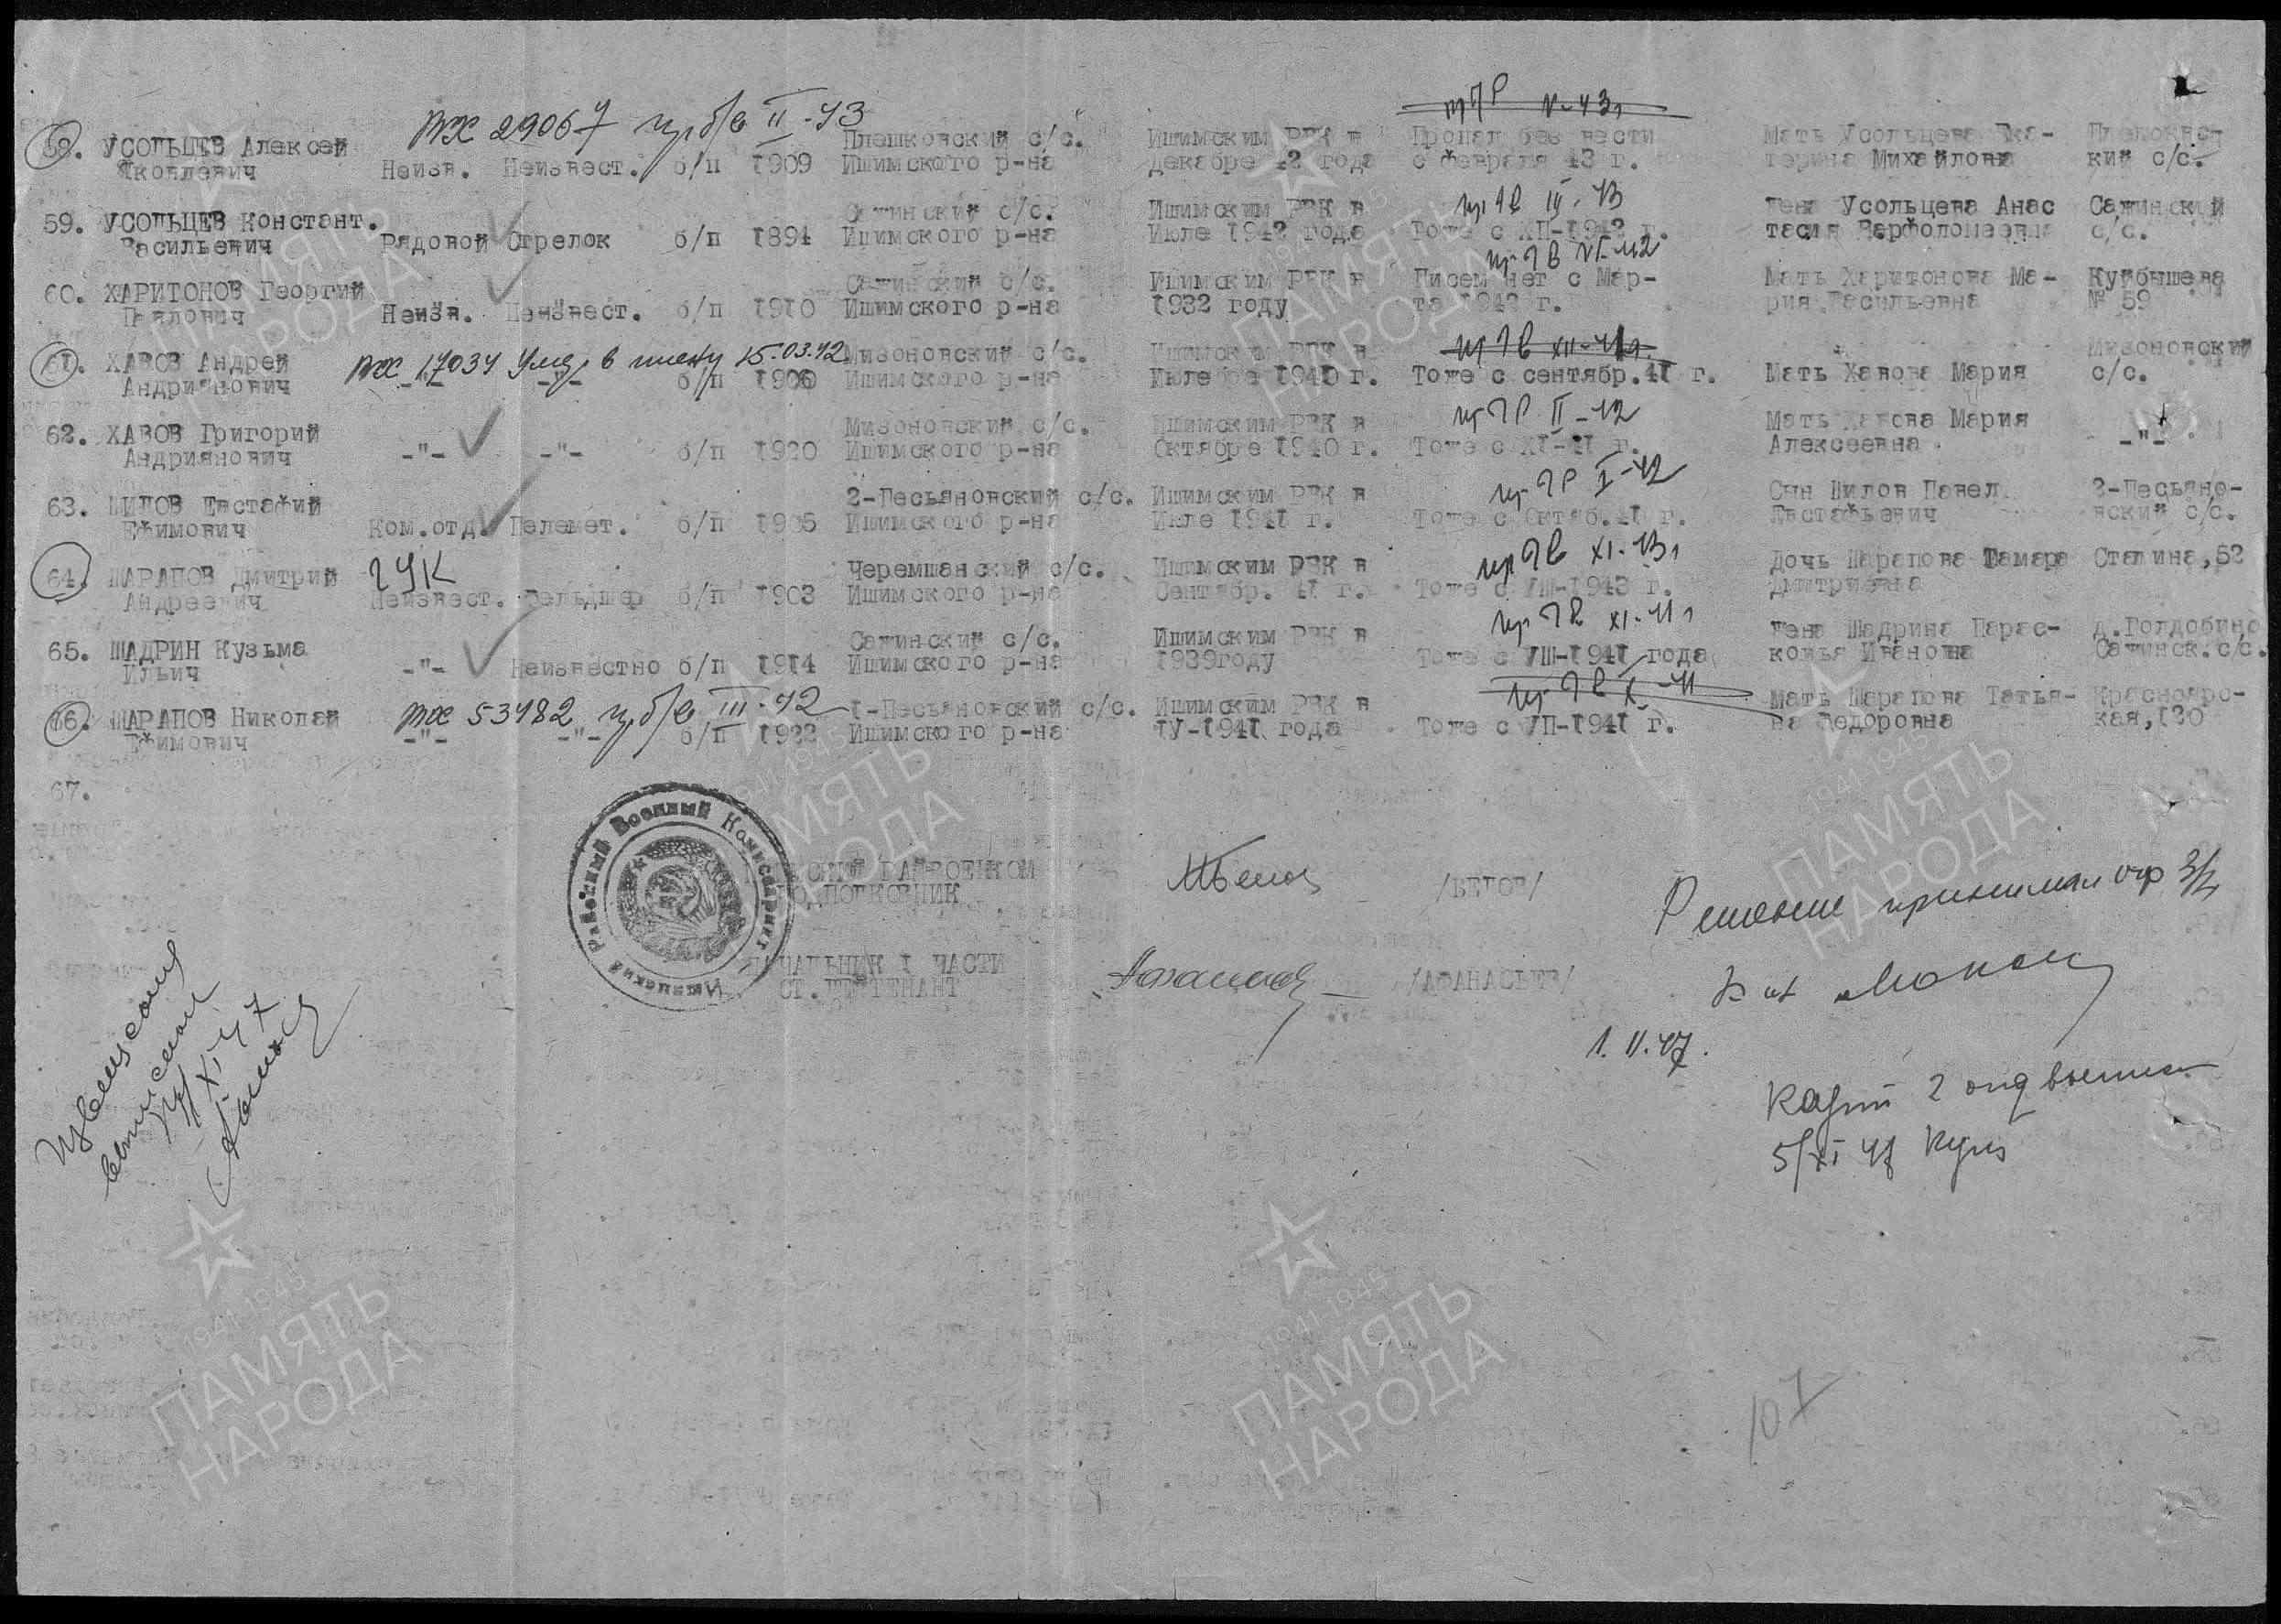 пр ЧР V-43г
вх 29067 пр. б/в II-43
58. УСОЛЬЦЕВ Алексей Плешковский с/с. Ишимским РВК в Пропал без вести Мать Усольцева Ека- Плешковс-
Яковлевич Неизв. Неизвест. б/п 1909 Ишимского р-на декабре 42 года с февраля 43 г. терина Михайловна кий с/с.
III-43
59. УСОЛЬЦЕВ Констант. Сажинский с/с. Ишимским РВК в Жена Усольцева Анас Сажинский
Васильевич Рядовой Стрелок б/п 1894 Ишимского р-на Июле 1942 года Тоже с XII-1942 г. тасия Варфоломеевна с/с.
VI-42
60. ХАРИТОНОВ Георгий Сажинский с/с. Ишимским РВК в Писем нет с Мар- Мать Харитонова Ма- Куйбышева
Павлович Неизв. Неизвест. б/п 1910 Ишимского р-на 1932 году та 1942 г. рия Васильевна № 59
XII-41г.
61. ХАВОВ Андрей вх 17034 Умер в плену 15.03.42 Мизоновский с/с. Ишимским РВК в Мизоновский
Андриянович -"- -"- б/п 1906 Ишимского р-на 1941 г. Тоже с сентябр.41 г. Мать Хавова Мария с/с.
II-42
62. ХАВОВ Григорий Мизоновский с/с. Ишимским РВК в Мать Хавова Мария
Андриянович -"- -"- б/п 1920 Ишимского р-на Октябре 1940 г. Тоже с XI-41 г. Алексеевна -"-
I-42
63. ШИЛОВ Евстафий 2-Песьяновский с/с. Ишимским РВК в Сын Шилов Павел 2-Песьяно-
Ефимович Ком.отд. Пелемет. б/п 1905 Ишимского р-на Июле 1941 г. Тоже с Октяб.41 г. Евстафьевич вский с/с.
XI-43г
64. ШАРАПОВ Дмитрий ГУК Черемшанский с/с. Ишимским РВК в Дочь Шарапова Тамара Сталина,52
Андреевич Неизвест. Фельдшер б/п 1903 Ишимского р-на Сентябр. 41 г. Тоже с VIII-1943 г. Дмитриевна
XI-41г
65. ШАДРИН Кузьма Сажинский с/с. Ишимским РВК в Жена Шадрина Парас- д.Голдобино
Ильич -"- Неизвестно б/п 1914 Ишимского р-на 1939году Тоже с VIII-1941 года ковья Ивановна Сажинск.с/с.
X-41
66. ШАРАПОВ Николай вх 53482 пр. б/в III-42 1-Песьяновский с/с. Ишимским РВК в Мать Шарапова Татья- Красноярс-
Ефимович -"- -"- б/п 1922 Ишимского р-на IV-1941 года Тоже с VII-1941 г. на Федоровна кая,120
67.
Ишимский Районный Военный Комиссариат
СКИЙ РАЙВОЕНКОМ
ПОДПОЛКОВНИК /БЕЛОВ/
НАЧАЛЬНИК I ЧАСТИ
СТ.ЛЕЙТЕНАНТ /АФАНАСЬЕВ/
Решение принимал
1.11.47.
Извещения
выписал
XI 47
Карт 2 отд
5/XI 47
107
ПАМЯТЬ
НАРОДА
1941-1945